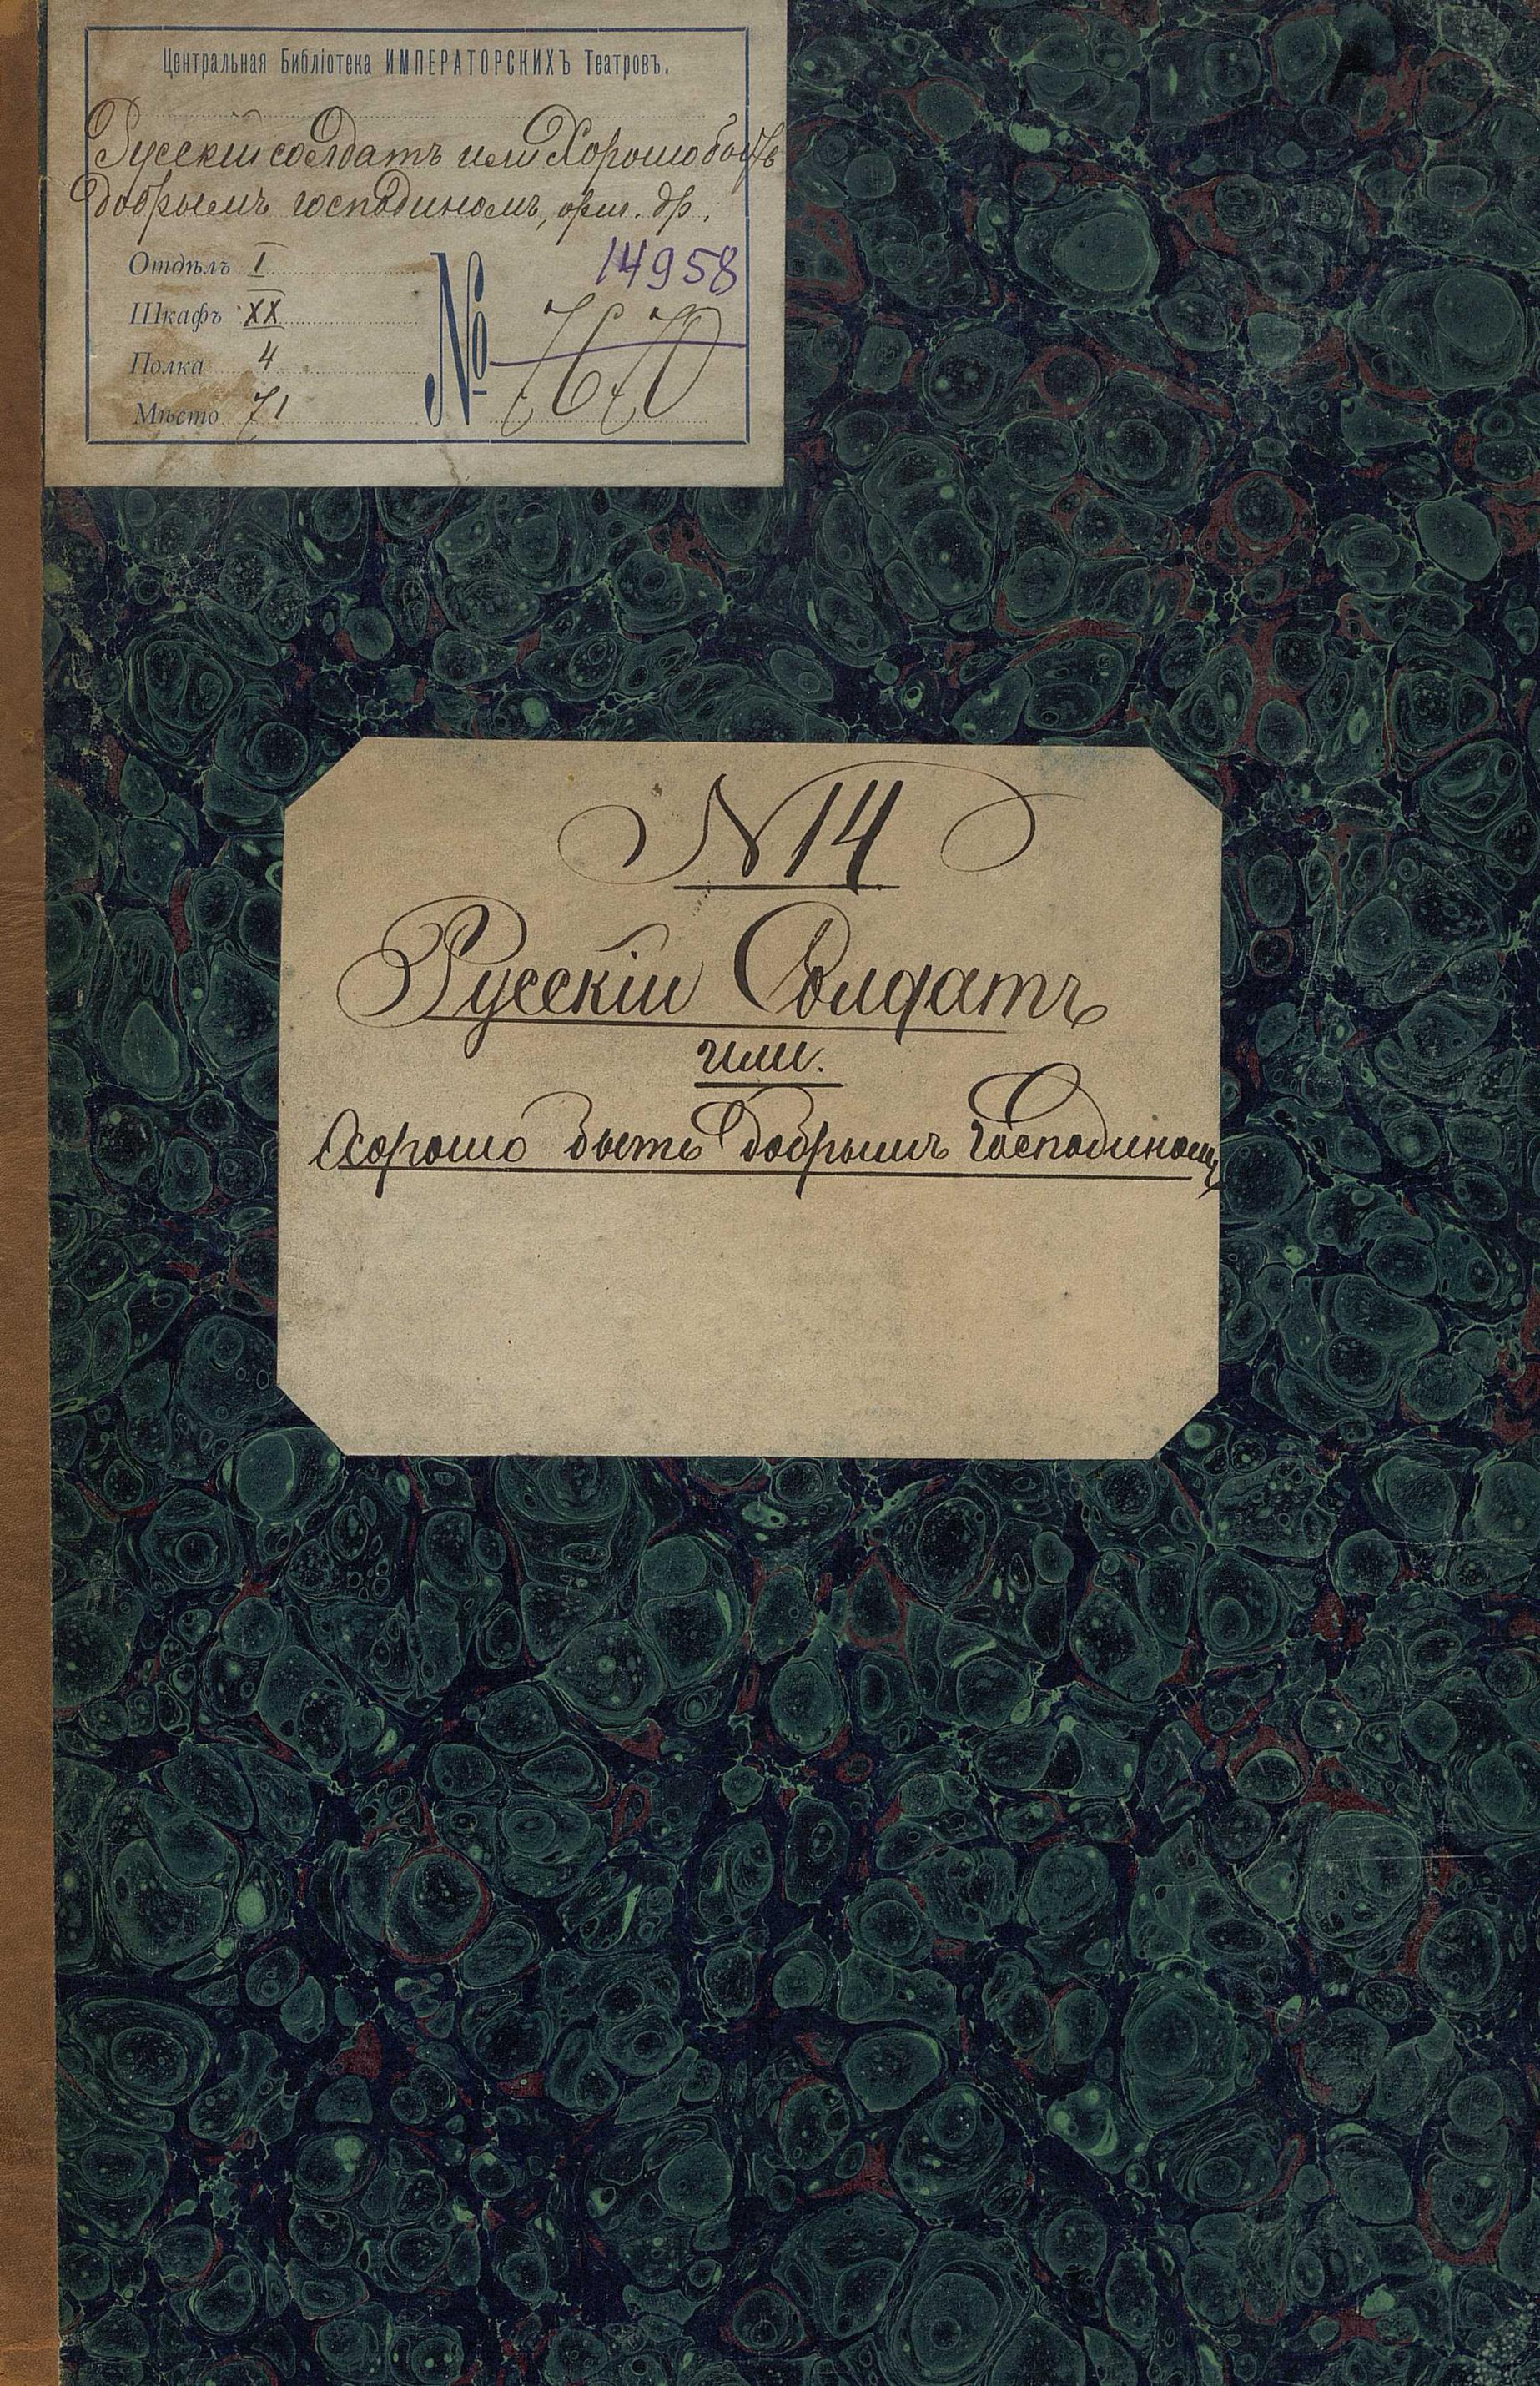 Центральная Библіотека ИМПЕРАТОРСКИХЪ Театровъ.
Русскій солдатъ или Хорошо быть
добрымъ господиномъ, ориг. др.
Отдѣлъ I
14958
Шкафъ XX
№ 7670
Полка 4
Мѣсто 71
N 14
Русскій Солдатъ
или.
Хорошо быть добрымъ Господиномъ